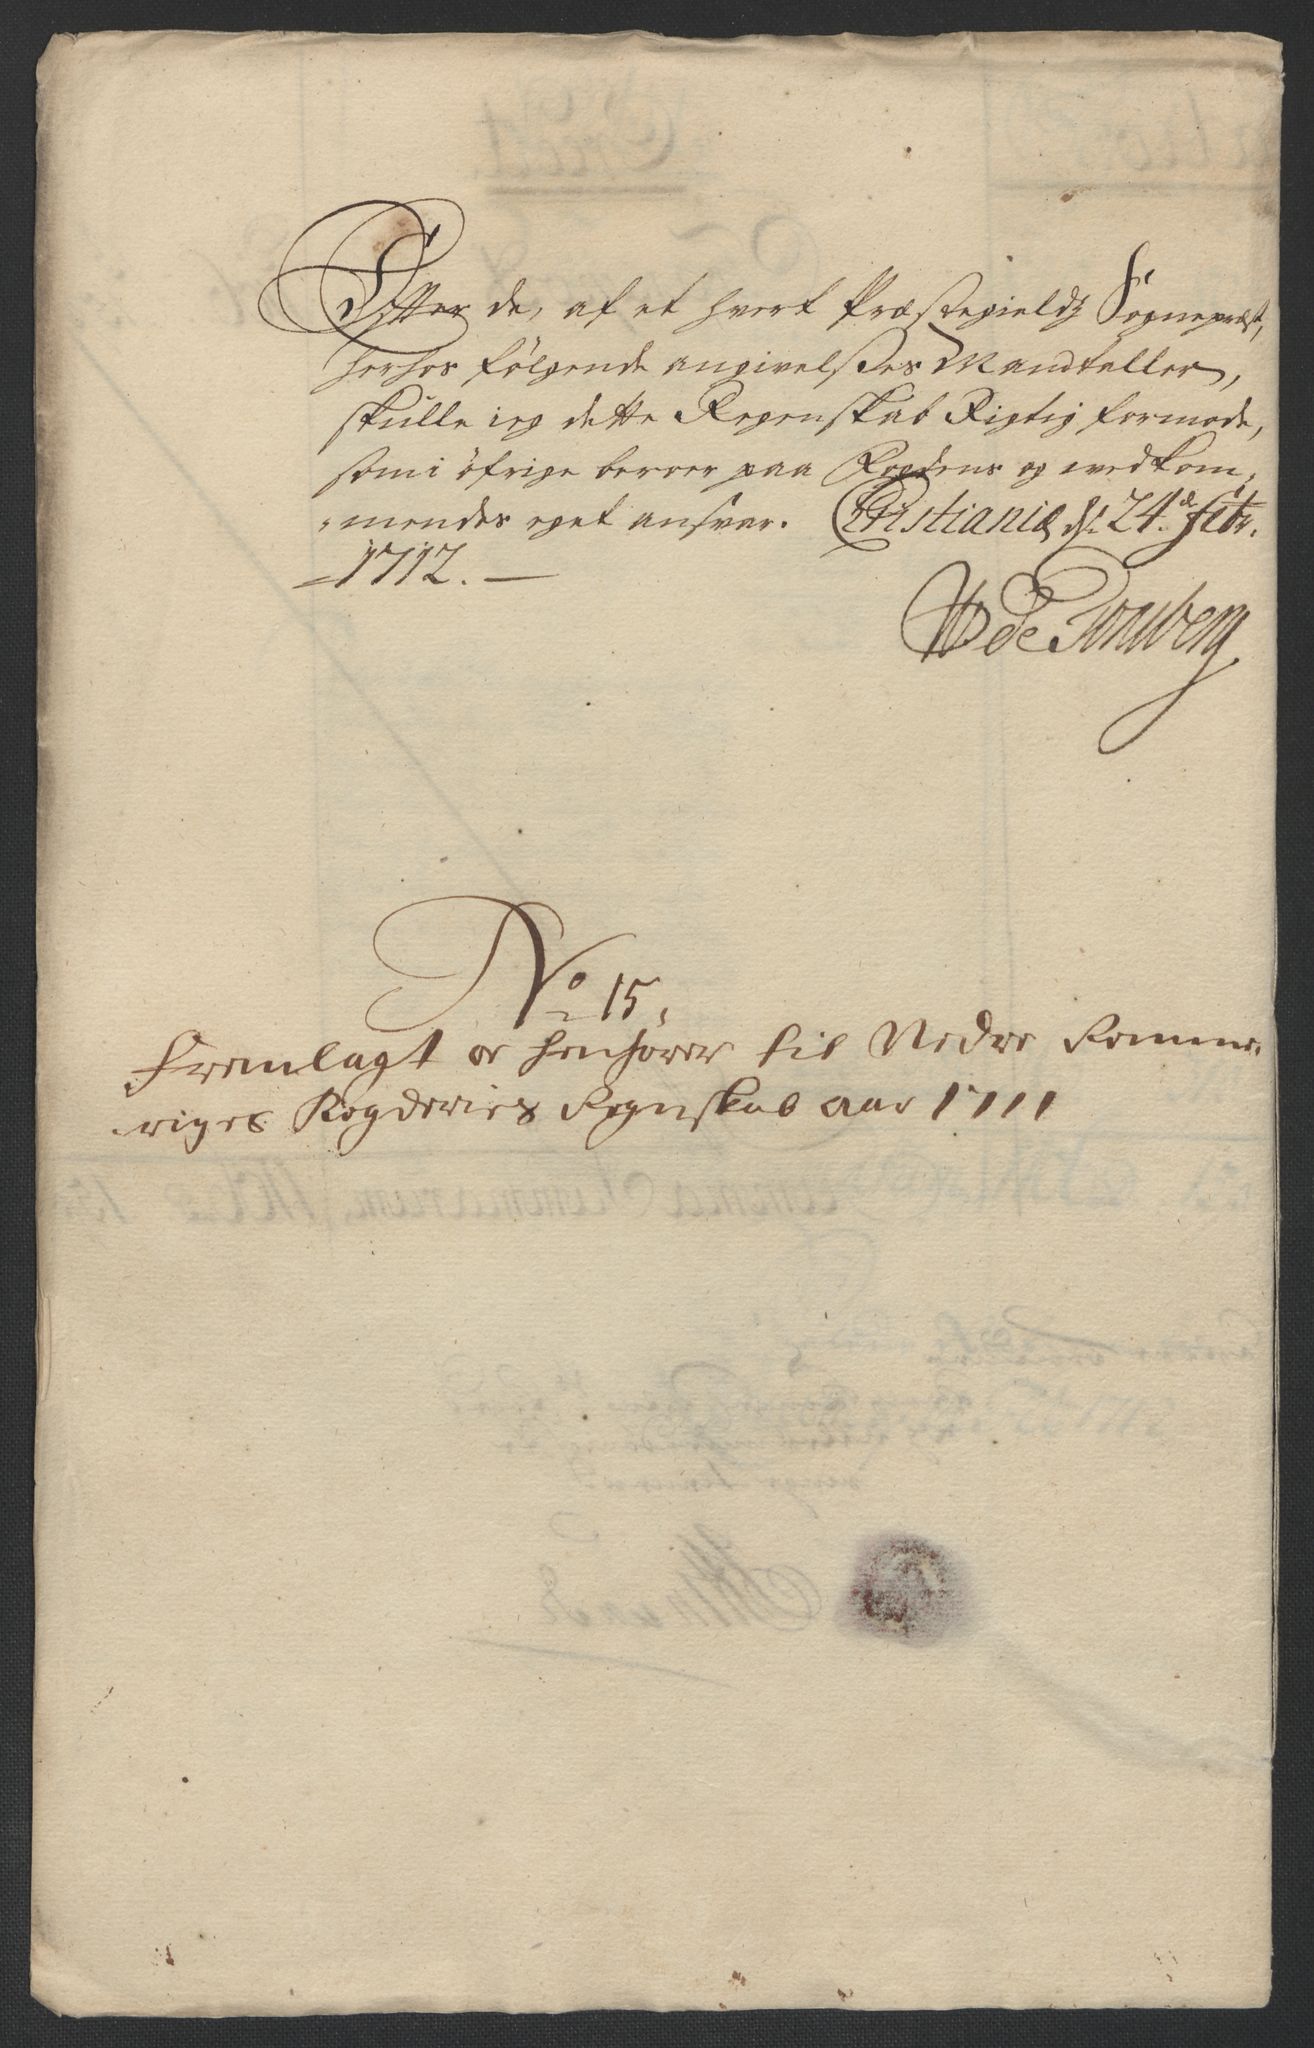 Effter de, af et hvert Præstegieldz Sognepræst,
herhos følgende angivelsses Mandtaller,
skulle ieg dette Regenskab Rigtig formode,
som i øfrige beroer paa Fogdens og vedkom-
-mendes eget ansvar. Christiania d: 24de Febr.
1712.
W de Tonsberg
No 15.
Fremlagt oc henhører til Nedre Romme-
riges Fogderies Regnskab aar 1711